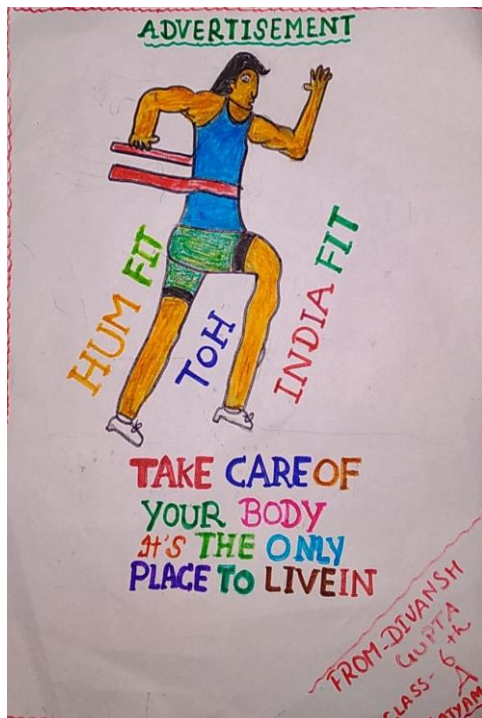 ADVERTISEMENT
HUM FIT
TOH
INDIA FIT
TAKE CARE OF
YOUR BODY
It'S THE ONLY
PLACE TO LIVE IN
FROM-DIVANSH
GUPTA
CLASS- 6th
A